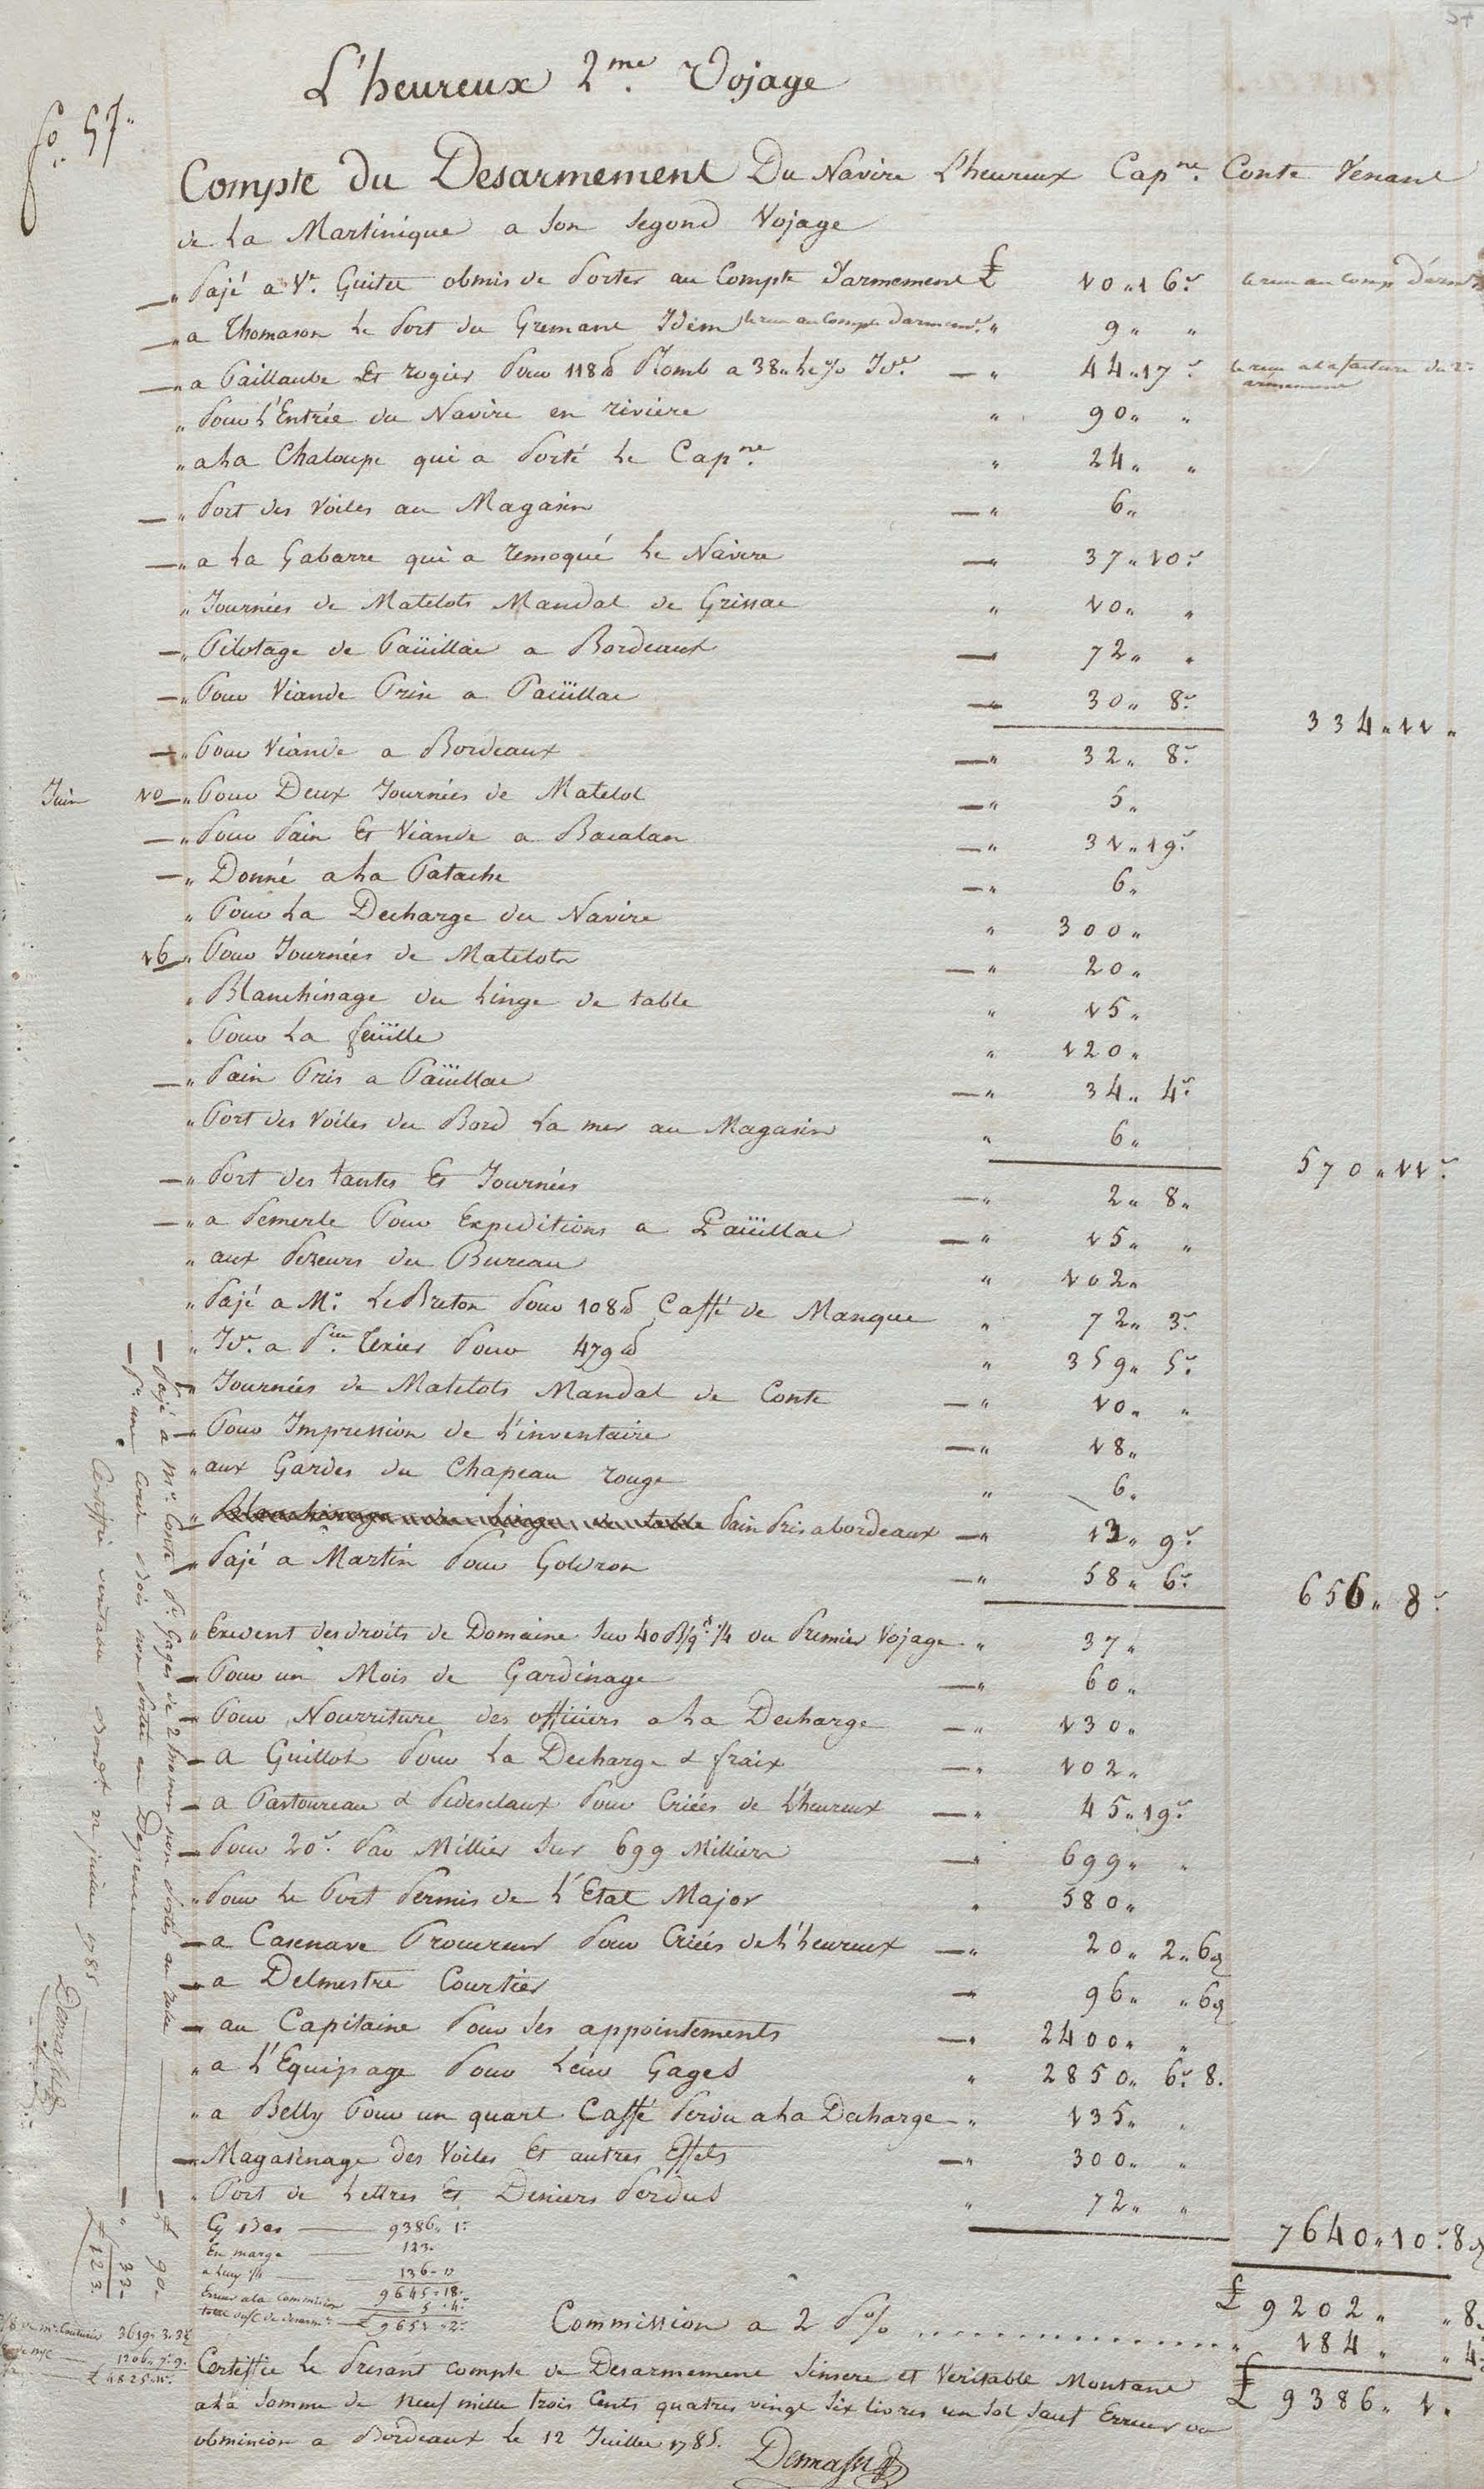 57
L'heureux 2me. Voyage
fo. 57"
Compte du Desarmement Du Navire L'heureux Capne. Conte Venant
de La Martinique a Son Segond Voyage
" Payé a Ve. Guitet obmis de Porter au Compte d'armement £ 10 " 16 s.
" a Thomason Le Port du Gremant Idem " 9 " "
" a Paillaube Et rogier Pour 118 lb Plomb a 38 " Le % Id. — " 44 " 17 s.
" Pour L'Entrée du Navire en riviere " 90 " "
" a La Chaloupe qui a Porté Le Capne. " 24 " "
" Port des Voiles au Magasin — " 6 "
" a La Gabarre qui a remoqué Le Navire — 37 " 10 s.
" Journées de Matelots Mandat de Grissac " 10 " "
" Pilotage de Paüillac a Bordeaux — 72 " "
" Pour Viande Prise a Paüillac — 30 " 8 s.
334 " 11 "
" Pour Viande a Bordeaux — " 32 " 8 s.
Juin 10 " Pour Deux Journées de Matelot — " 5 "
" Pour Pain Et Viande a Bacalan — " 31 " 19 s.
" Donné a La Patache — " 6 "
" Pour La Decharge du Navire " 300 "
16 " Pour Journées de Matelots — " 20 "
" Blanchinage du Linge de table " 15 "
" Pour La feüille " 120 "
" Pain Pris a Paüillac — " 34 " 4 s.
" Port des Voiles du Bord La mer au Magasin " 6 "
570 " 11 s.
" Port des tantes Et Journées — " 2 " 8 "
" a Pemerle Pour Expeditions a Paüillac — " 15 " "
" aux Pezeurs du Bureau " 102 "
" Payé a Mr. Le Breton Pour 108 lb Caffé de Manque " 72 " 3 s.
" Id. a Texier Pour 479 lb " 359 " 5 s.
" Journées de Matelots Mandat de Conte — " 10 " "
" Pour Impression de L'inventaire — " 18 "
" aux Gardes du Chapeau rouge " 6 "
" Blanchinage du Linge de table Pain Pris a bordeaux — " 13 " 9 s.
" Payé a Martin Pour Goudron — " 58 " 6 s.
656 " 8 s.
" Exedent des droits de Domaine Sur 40 B/qs. 1/4 du Premier Voyage " 37 "
" Pour un Mois de Gardinage — " 60 "
" Pour Nourriture des officiers a La Decharge — " 130 "
— a Guillot Pour La Decharge & fraix — " 102 "
— a Pastoureau & Pedesclaux Pour Criées de L'heureux — " 45 " 19 s.
— Pour 20 s. Par Millier Sur 699 Milliers — 699 " "
" Pour Le Port Permis de L'Etat Major " 580 "
— a Casenave Procureur Pour Criées de L'heureux — " 20 " 2 " 6 d
— a Delmestre Courtier — 96 " " 6 d
— au Capitaine Pour Ses appointements — " 2400 " "
" a L'Equipage Pour Leur Gages " 2850 " 6 s. 8.
" a Belly Pour un quart Caffé Perdu a La Decharge — " 135 " "
— Magasinage des Voiles Et autres Effets — " 300 " "
" Port de Lettres Et Deniers Perdus " 72 " "
7640 " 10 s. 8 d
Cy 9386 " 1 s.
En marge — 123 "
136 " 17
9645 " 18 "
Erreur a la Commission — 5 " 4 s.
£ 9651 " 2 s.
£ 9202 " " 8.
Commission a 2 P% .......... " 184 " " 4.
£ 9386 " 1 "
Certiffie Le Presant compte de Desarmement Sinsere et Veritable Montant
a La Somme de neuf mille trois Cents quatres vingt Six livres un Sol Sauf Erreur ou
obminion a Bordeaux Le 12 Juillet 1785.
— Payé a Mr. Conte Pr. Gages de 2 non Portés au — £ 90 "
— Pr. une non Portée en Depense — " 33 "
£ 123 "
Certiffié veritable 12 juillet 1785
3619 " 3 " 3
1206 " 7 " 9
£ 4825 " 11 s.